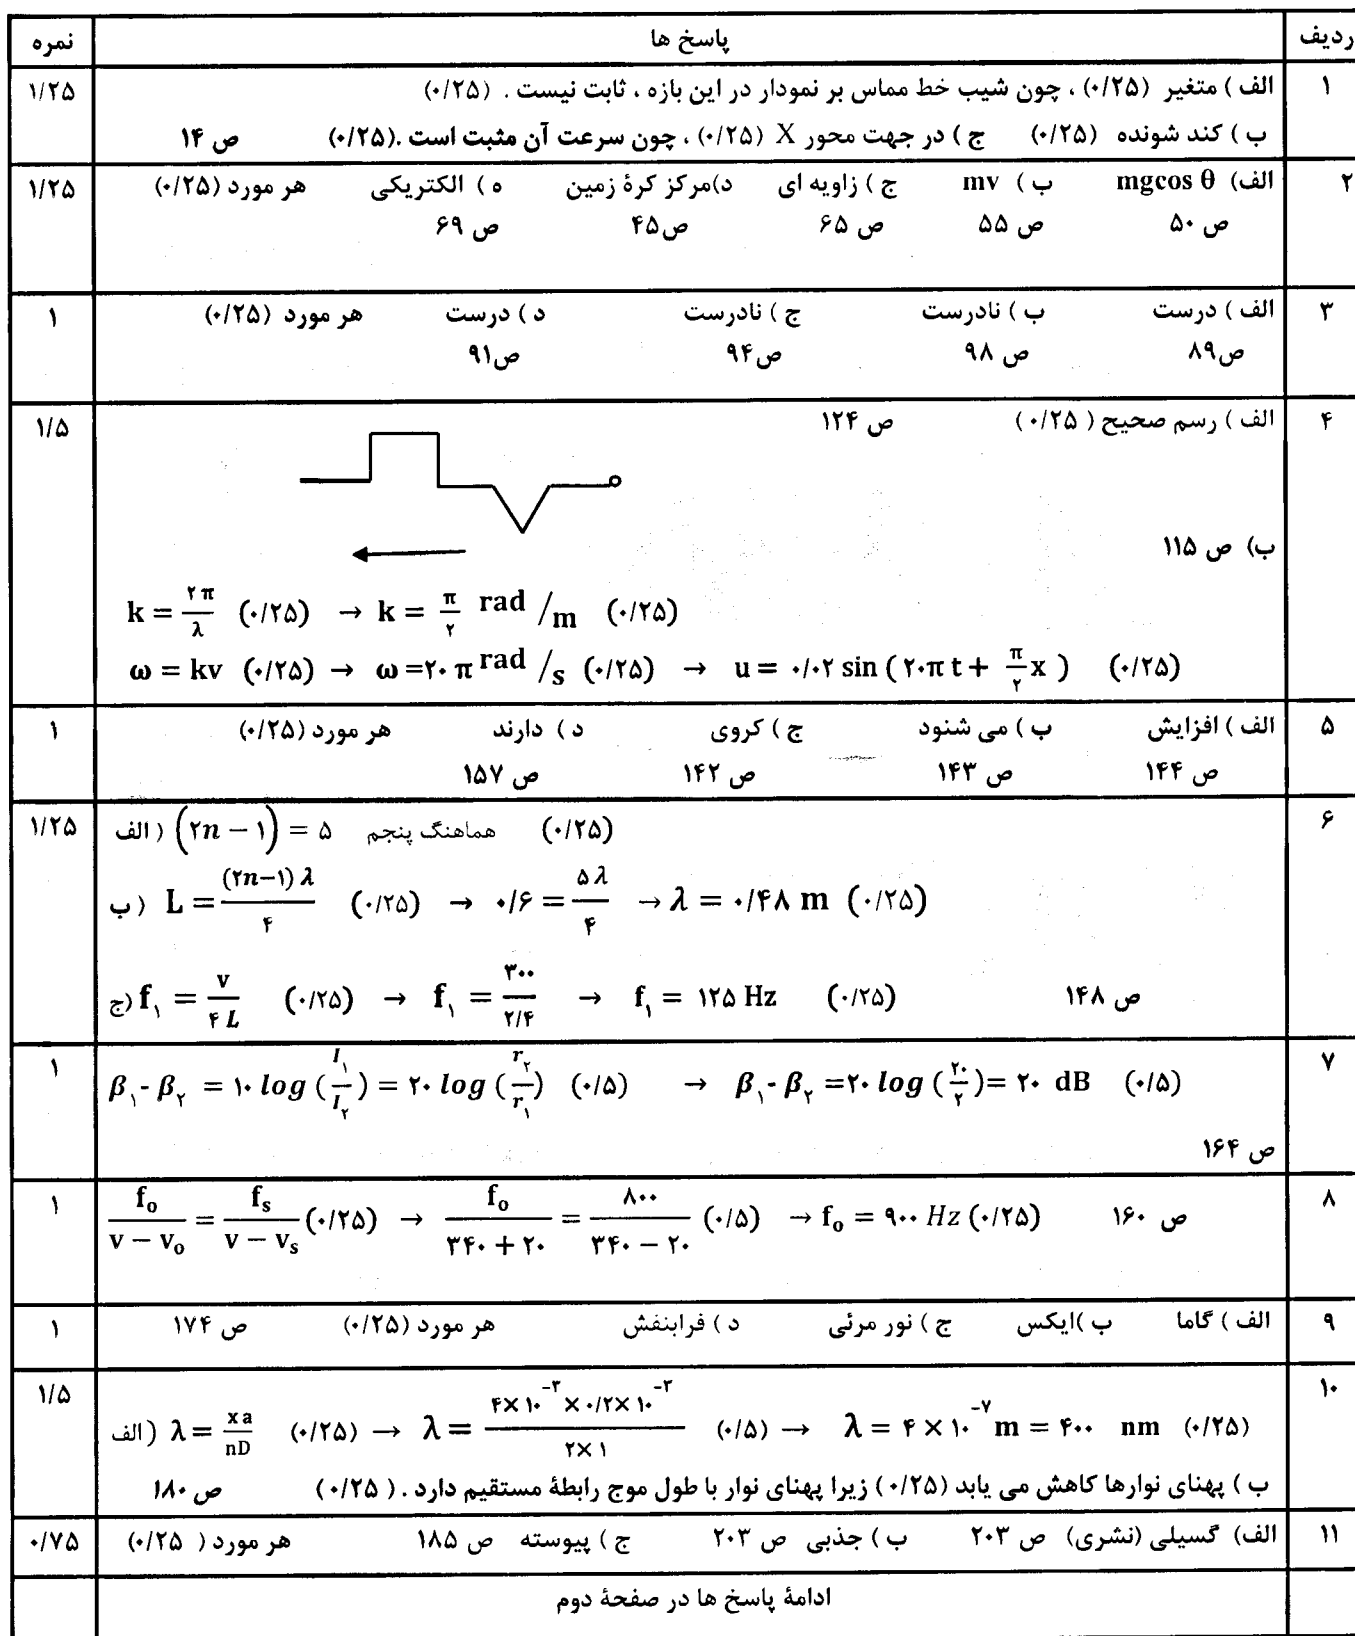 ردیف	پاسخ ها	نمره
۱	الف ) متغیر (۰/۲۵) ، چون شیب خط مماس بر نمودار در این بازه ، ثابت نیست . (۰/۲۵)	۱/۲۵
ب ) کند شونده (۰/۲۵) ج ) در جهت محور X (۰/۲۵) ، چون سرعت آن مثبت است .(۰/۲۵) ص ۱۴
۲	الف) mgcos θ ب ) mv ج ) زاویه ای د)مرکز کرهٔ زمین ه ) الکتریکی هر مورد (۰/۲۵)	۱/۲۵
ص ۵۰ ص ۵۵ ص ۶۵ ص۴۵ ص ۶۹
۳	الف ) درست ب ) نادرست ج ) نادرست د ) درست هر مورد (۰/۲۵)	۱
ص۸۹ ص ۹۸ ص۹۴ ص۹۱
۴	الف ) رسم صحیح ( ۰/۲۵) ص ۱۲۴	۱/۵
ب) ص ۱۱۵
k = ۲π/λ (۰/۲۵) → k = π/۲ rad/m (۰/۲۵)
ω = kv (۰/۲۵) → ω =۲۰ π rad/s (۰/۲۵) → u = ۰/۰۲ sin ( ۲۰π t + π/۲ x ) (۰/۲۵)
۵	الف ) افزایش ب ) می شنود ج ) کروی د ) دارند هر مورد (۰/۲۵)	۱
ص ۱۴۴ ص ۱۴۳ ص ۱۴۲ ص ۱۵۷
۶	الف ) (۲n − ۱) = ۵ هماهنگ پنجم (۰/۲۵)	۱/۲۵
ب ) L = (۲n−۱) λ/۴ (۰/۲۵) → ۰/۶ = ۵ λ/۴ → λ = ۰/۴۸ m (۰/۲۵)
ج) f۱ = v/۴ L (۰/۲۵) → f۱ = ۳۰۰/۲/۴ → f۱ = ۱۲۵ Hz (۰/۲۵) ص ۱۴۸
۷	β۱- β۲ = ۱۰ log (I۱/I۲) = ۲۰ log (r۲/r۱) (۰/۵) → β۱- β۲ =۲۰ log (۲۰/۲)= ۲۰ dB (۰/۵)	۱
ص ۱۶۴
۸	fo/v − vo = fs/v − vs (۰/۲۵) → fo/۳۴۰ + ۲۰ = ۸۰۰/۳۴۰ − ۲۰ (۰/۵) → fo = ۹۰۰ Hz (۰/۲۵) ص ۱۶۰	۱
۹	الف ) گاما ب )ایکس ج ) نور مرئی د ) فرابنفش هر مورد (۰/۲۵) ص ۱۷۴	۱
۱۰	الف ) λ = xa/nD (۰/۲۵) → λ = ۴×۱۰⁻³ ×۰/۲×۱۰⁻³/۲×۱ (۰/۵) → λ = ۴ × ۱۰⁻⁷ m = ۴۰۰ nm (۰/۲۵)	۱/۵
ب ) پهنای نوارها کاهش می یابد (۰/۲۵) زیرا پهنای نوار با طول موج رابطهٔ مستقیم دارد . ( ۰/۲۵) ص ۱۸۰
۱۱	الف) گسیلی (نشری) ص ۲۰۳ ب ) جذبی ص ۲۰۳ ج ) پیوسته ص ۱۸۵ هر مورد ( ۰/۲۵)	۰/۷۵
ادامهٔ پاسخ ها در صفحهٔ دوم